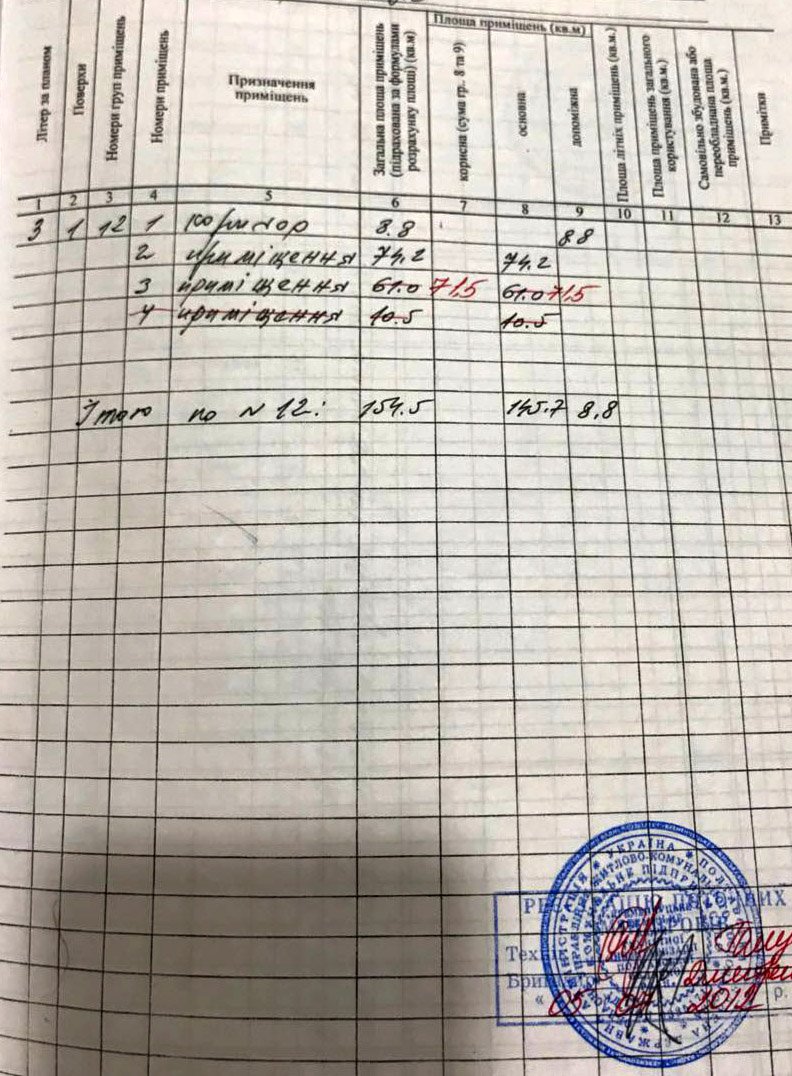 Літер за планом
Поверхи
Номери груп приміщень
Номери приміщень
Призначення приміщень
Загальна площа приміщень (підрахована за формулами розрахунку площі) (кв.м)
Площа приміщень (кв.м)
корисна (сума гр.. 8 та 9)
основна
допоміжна
Площа літніх приміщень (кв.м.)
Площа приміщень загального користування (кв.м.)
Самовільно збудована або переобладнана площа приміщень (кв.м.)
Примітки
1 2 3 4 5 6 7 8 9 10 11 12 13
3 1 12 1 коридор 8.8 8.8
2 приміщення 74.2 74.2
3 приміщення 61.0 71,5 61.0 71,5
4 приміщення 10.5 10.5
Итого по N 12: 154.5 145.7 8,8
УКРАЇНА
Бри
« 05 07 2012 р.